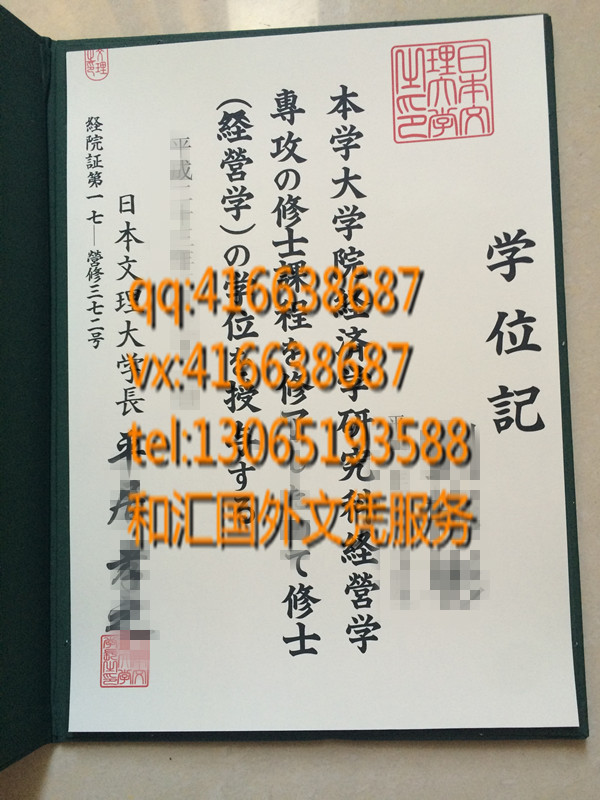 学位記
本学大学院経済学研究科経営学
専攻の修士課程を修了した
て修士
(経営学)の学位を授与する
平成二十三年
日本文理大学長
経院証第一七—営修三七二号
日本文理大学之印
qq:416638687
vx:416638687
tel:13065193588
和汇国外文凭服务